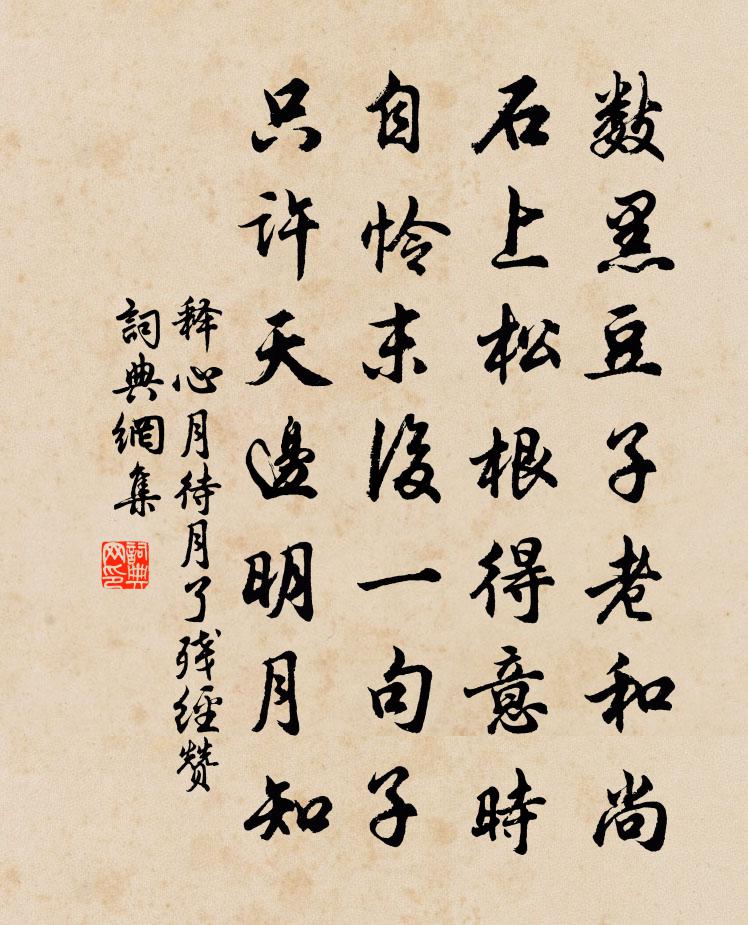 数黑豆子老和尚
石上松根得意時
自怜末後一句子
只許天邊明月知
释心月待月了残經赞
詞典網集
詞典网印